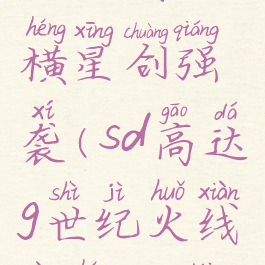 héng xīng chuàng qiáng
横星创强
xí gāo dá
袭(sd高达
shì jì huǒ xiàn
g世纪火线